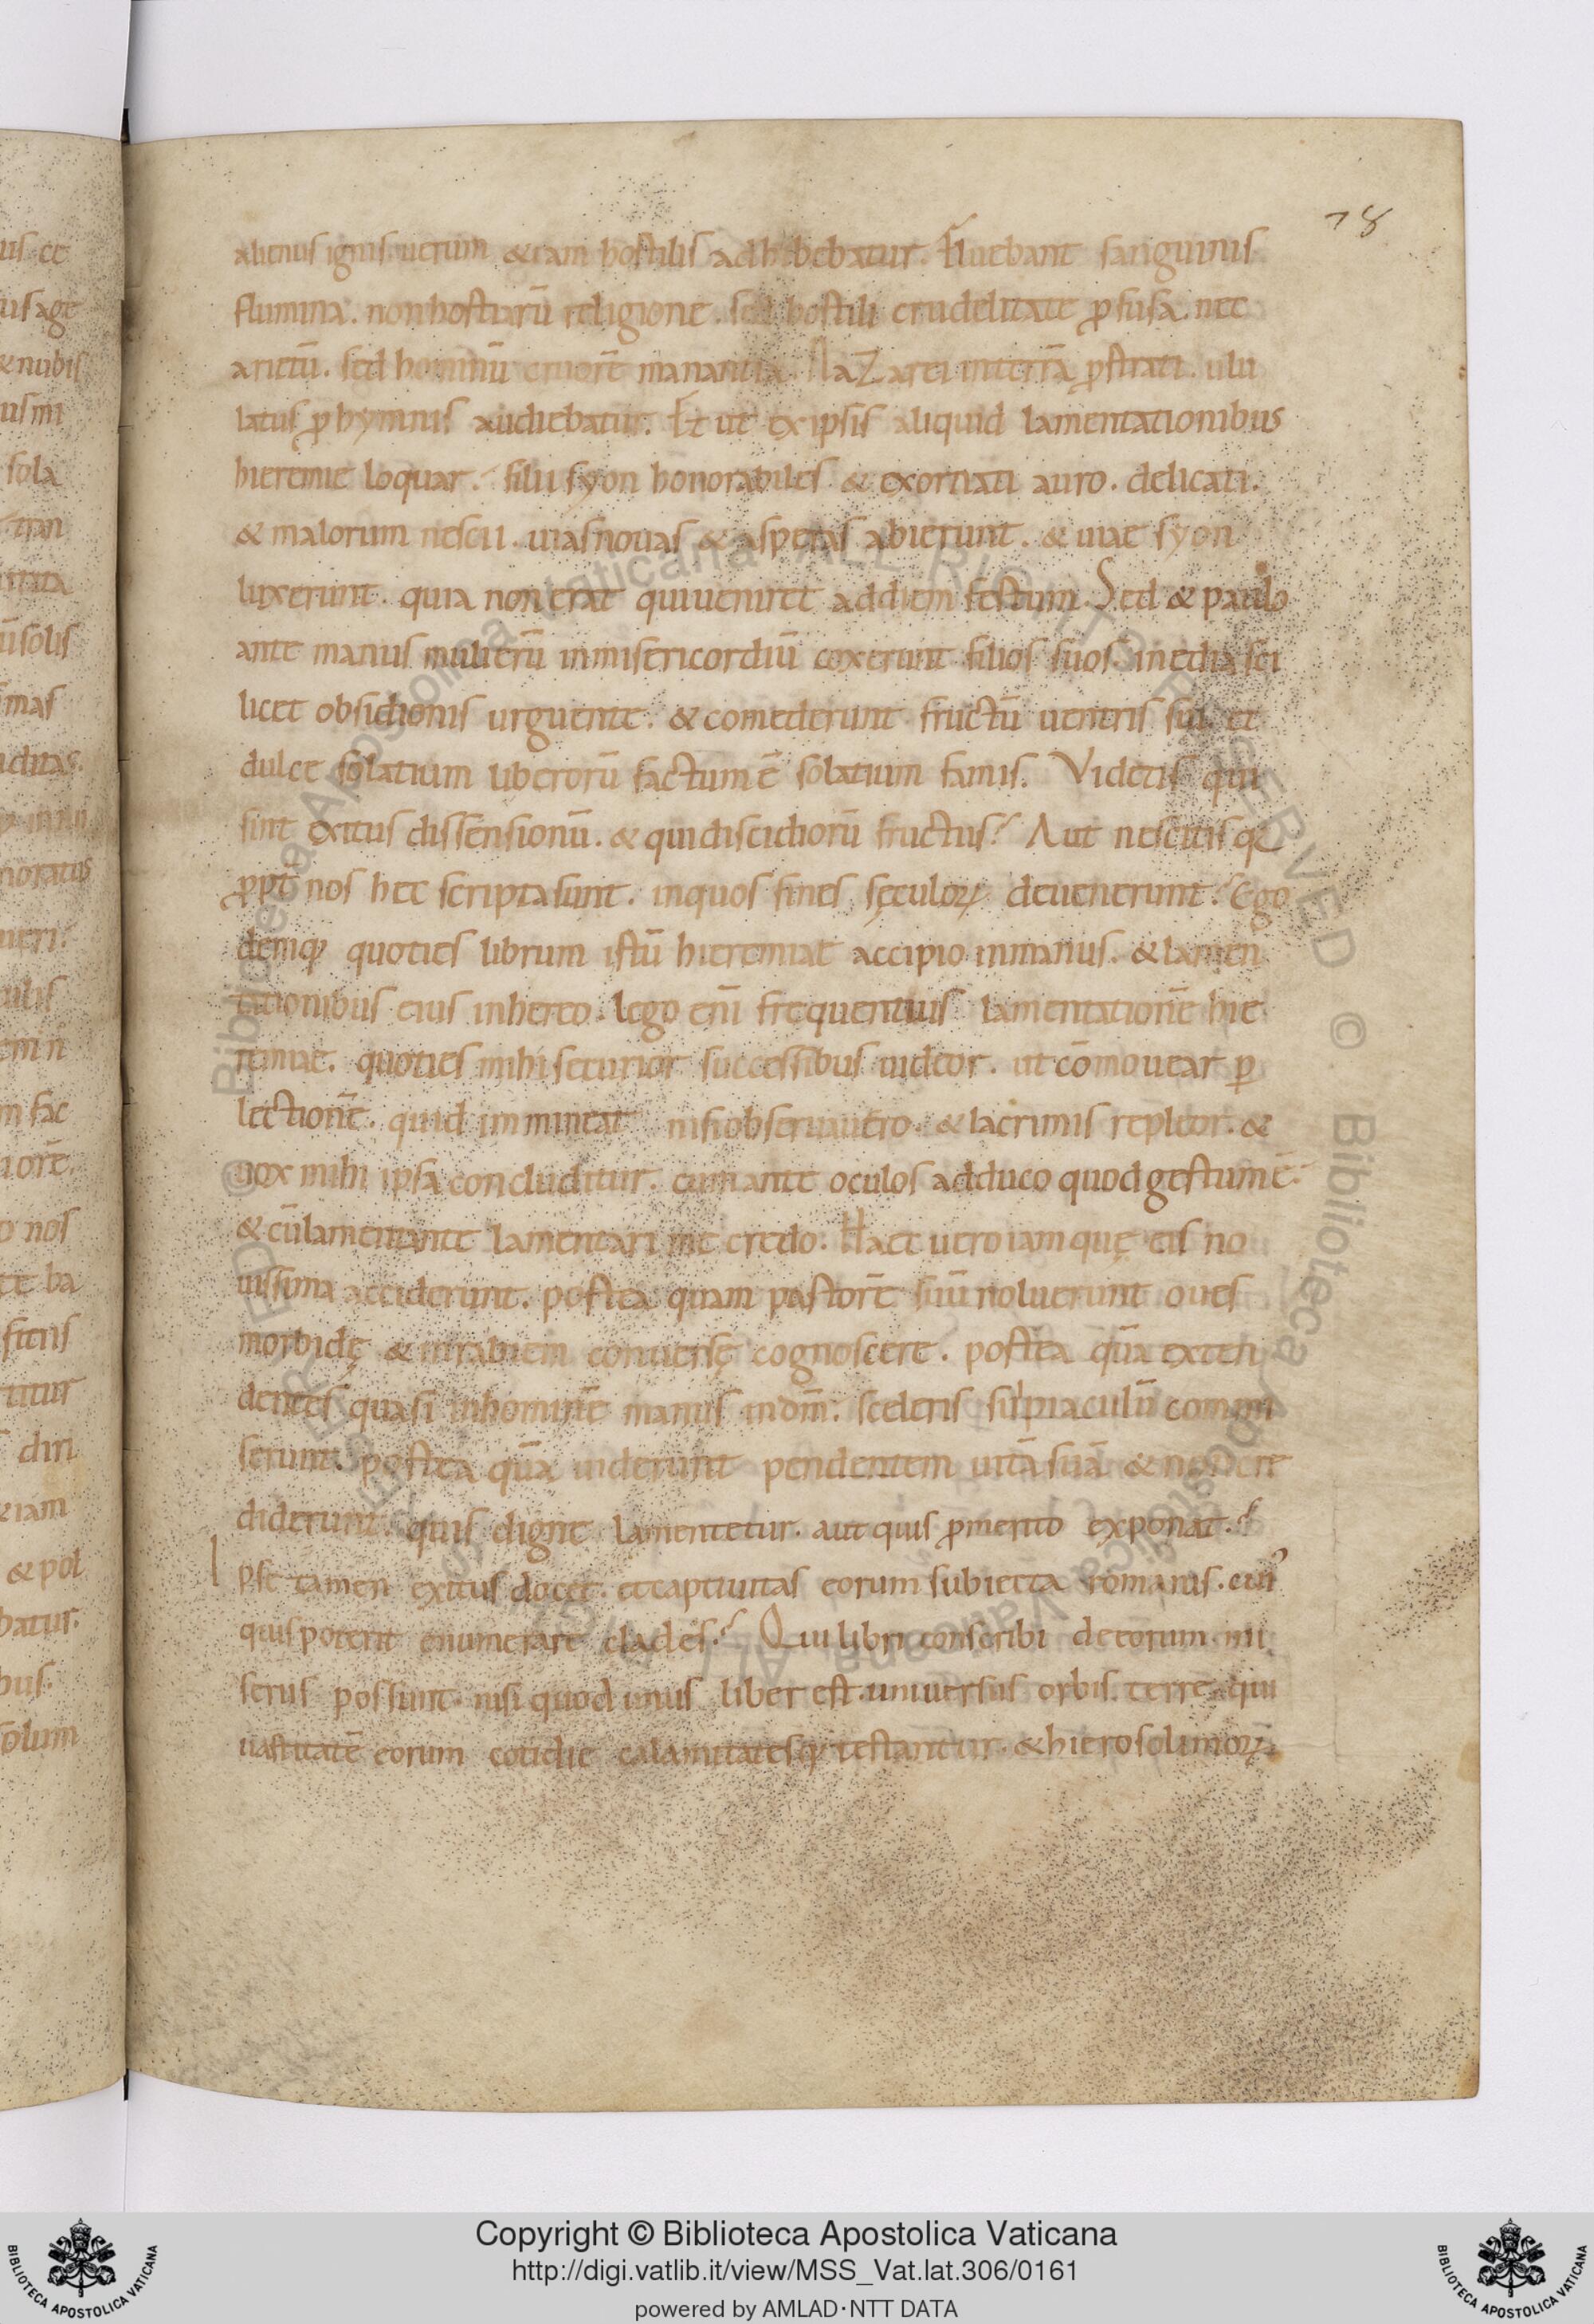 78
alienus ignis. uerum &iam hostilis adhibebatur. Fluebant sanguinis
flumina. non hostiarū religione. sed hostili crudelitate ꝓfusa. nec
arietū. sed hominū cruorē manantia. NaZarei interrā ꝓstrati. ulu
latus ꝓ hymnis audiebatur. Et ut ex ipsis aliquid lamentationibus
hieremie loquar. filii syon honorabiles & exornati auro. delicati.
& malorum nescii. uias nouas & asperas abierunt. & uiae syon
luxerunt. quia non erat qui ueniret ad diem festum. Sed & paulo
ante manus mulierū inmisericordiū coxerunt filios suos. inedia sci
licet obsidionis urguente. & comederunt fructū uentris sui. et
dulce solatium liberorū factum ē solatium famis. Videtis qui
sint exitus dissensionū. & qui discidiorū fructus? Aut nescitis qꝫ
ꝓpt nos hec scripta sunt. inquos fines sęculoꝝ deuenerunt? Ego
deniqꝫ quoties librum istū hieremiae accipio inmanus. & lamen
tationibus eius inhereo. lego enī frequentius lamentationē hie
remiae. quoties mihi securior successibus uideor. ut cōmouear ꝑ
lectionē. quid immineat nisi obseruauero. & lacrimis repleor. &
uox mihi ipsa concluditur. cum ante oculos adduco quod gestum ē.
& cū lamentante lamentari me credo. Haec uero iam quę eis no
uissima acciderunt. postea quam pastorē suū noluerunt oues
morbidę & inrabiem conuersę cognoscere. postea quā exten
dentes quasi inhominē manus indm̄. sceleris sui piaculū commi
serunt. postea quā uiderunt pendentem uitā suā & non cre
diderunt. quis digne lamentetur. aut quis ꝓmerito exponat?
Ipse tamen exitus docet. et captiuitas eorum subiecta romanis. cuiꝰ
quis poterit enumerare clades? Qui libri conscribi de eorum mi
seriis possunt. nisi quod unus liber est. uniuersus orbis terre. qui
uastitatē eorum cotidie calamitatesqꝫ testantur. & hierosolimoꝝ
Copyright © Biblioteca Apostolica Vaticana
http://digi.vatlib.it/view/MSS_Vat.lat.306/0161
powered by AMLAD·NTT DATA